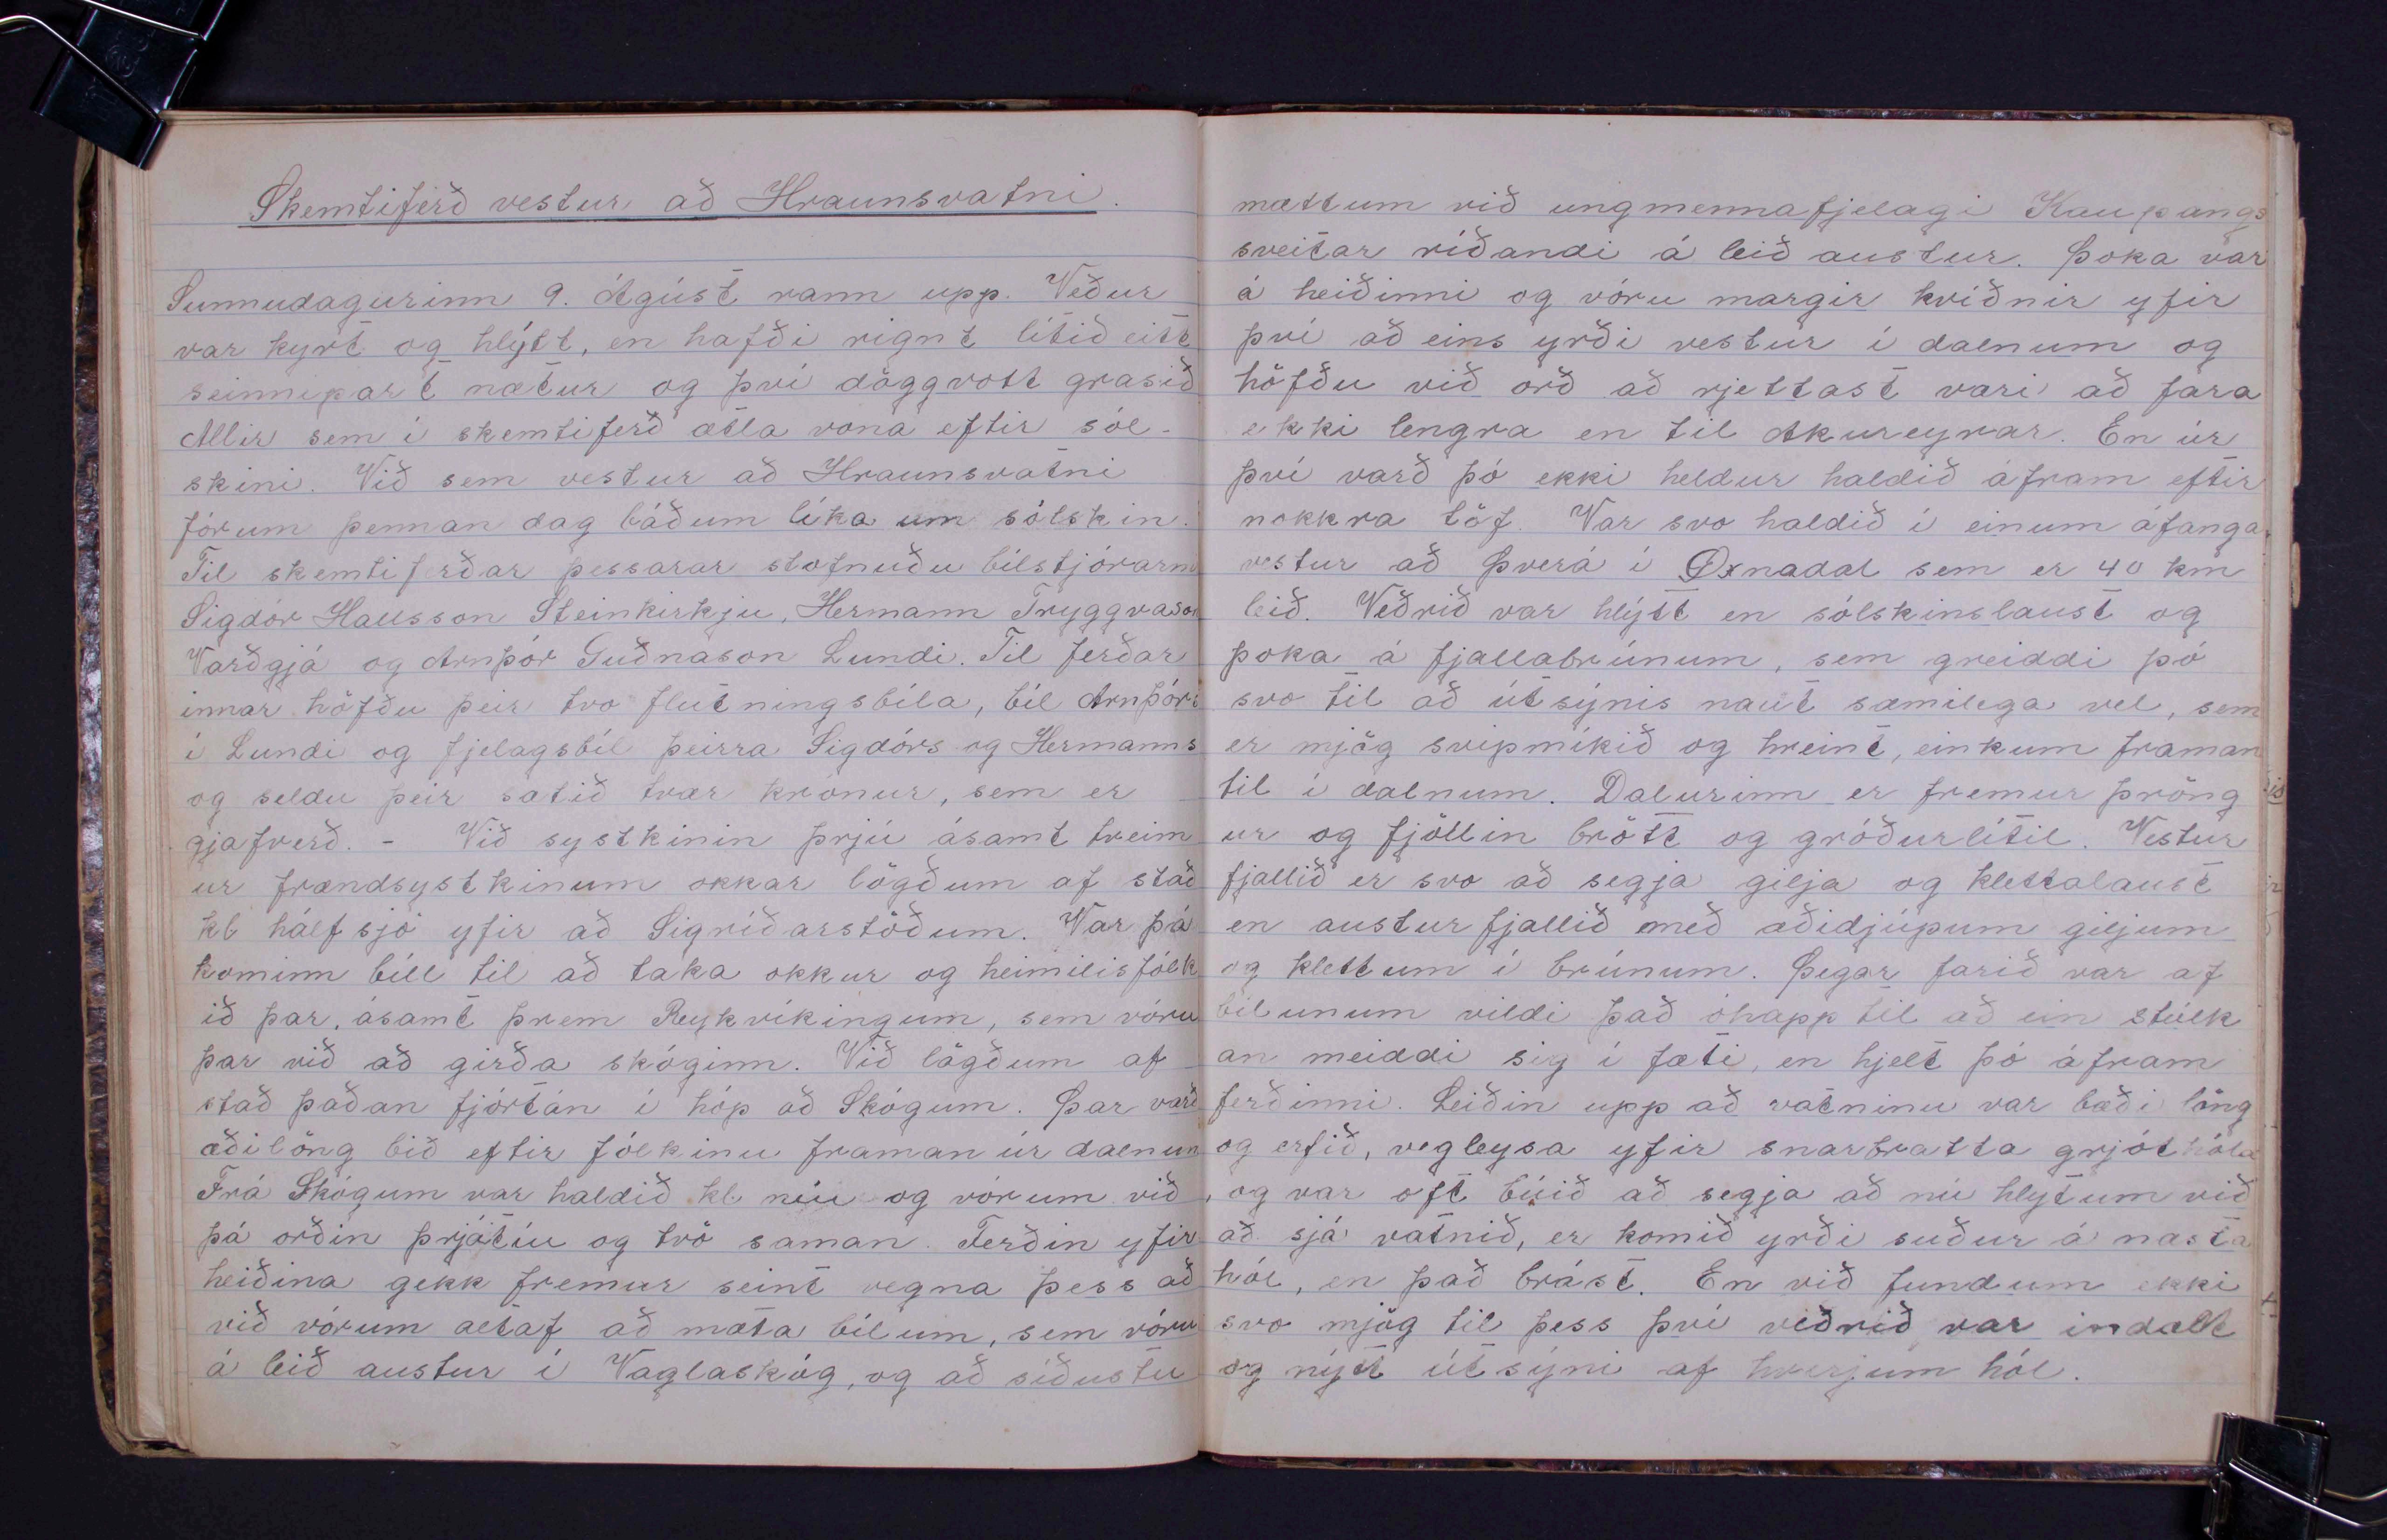 Skemtiferð vestur að Hraunsvatni.
Sunnudagurinn 9. Ágúst rann upp. Veður
var kyrt og hlýtt, en hafði rignt lítið eitt
seinnipart nætur og því döggvott grasið
Allir sem í skemtiferð ætla vona eftir sól-
skini. Við sem vestur að Hraunsvatni
fórum þennan dag báðum líka um sólskin.
Til skemtiferðar þessarar stofnuðu bílstjórarnir
Sigdór Hallsson Steinkirkju, Hermann Tryggvason
Varðgjá og Arnþór Guðnason Lundi. Til ferðar
innar höfðu þeir tvo flutningsbíla, bíl Arnþórs
í Lundi og fjelagsbíl þeirra Sigdórs og Hermanns
og seldu þeir sætið tvær krónur, sem er
gjafverð. - Við systkinin þrjú ásamt tveim
ur frændsystkinum okkar lögðum af stað
kl hálf sjö yfir að Sigríðarstöðum. Var þá
kominn bíll til að taka okkur og heimilisfólk
ið þar, ásamt þrem Reykvíkingum, sem vóru
þar við að girða skóginn. Við lögðum af
stað þaðan fjórtán í hóp að Skógum. Þar varð
æðilöng bið eftir fólkinu framan úr dalnum
Frá Skógum var haldið kl. níu og vórum við
þá orðin þrjátíu og tvö saman. Ferðin yfir
heiðina gekk fremur seint vegna þess að
við vórum altaf að mæta bílum, sem vóru
á leið austur í Vaglaskóg, og að síðustu
mættum við ungmennafjelagi Kaupangs
sveitar ríðandi á leið austur. Þoka var
á heiðinni og vóru margir kvíðnir yfir
því að eins yrði vestur í dalnum og
höfðu við orð að rjettast væri að fara
ekki lengra en til Akureyrar. En úr
því varð þó ekki heldur haldið áfram eftir
nokkra töf. Var svo haldið í einum áfanga
vestur að Þverá í Öxnadal sem er 40 km
leið. Veðrið var hlýtt en sólskinslaust og
þoka á fjallabrúnum, sem greiddi þó
svo til að útsýnis naut sæmilega vel, sem
er mjög svipmikið og hreint, einkum framan
til í dalnum. Dalurinn er fremur þröng
ur og fjöllin brött og gróðurlítil. Vestur
fjallið er svo að segja gilja og klettalaust
en austurfjallið með æðidjúpum giljum
og klettum í brúnum. Þegar farið var af
bílunum vildi það óhapp til að ein stúlk
an meiddi sig í fæti, en hjelt þó áfram
ferðinni. Leiðin upp að vatninu var bæði löng
og erfið, vegleysa yfir snarbratta grjóthóla
, og var oft búið að segja að nú hlytum við
að sjá vatnið, er komið yrði suður á næsta
hól, en það brást. En við fundum ekki
svo mjög til þess því veðrið var indælt
og nýtt útsýni af hverjum hól.